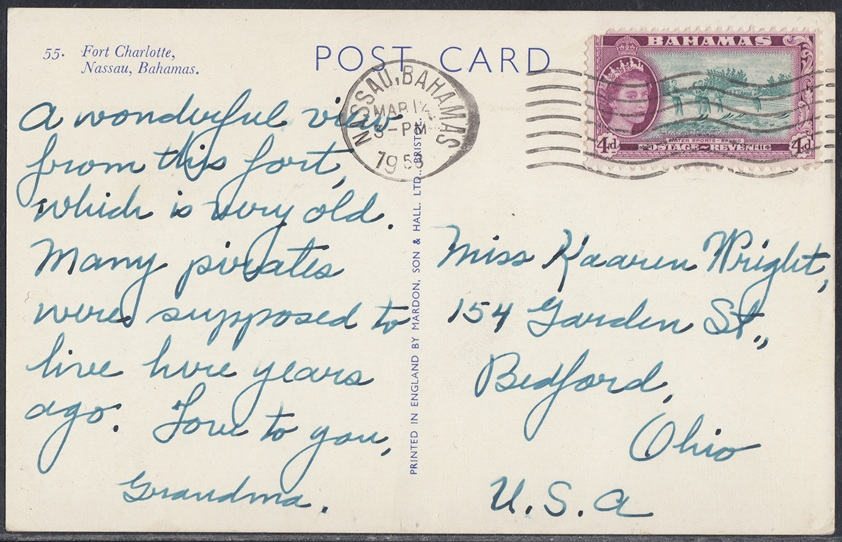 55. Fort Charlotte,
Nassau, Bahamas.
POST CARD
A wonderful view
from this fort,
which is very old.
Many pirates
were supposed to
live here years
ago. Love to you,
Grandma.
NASSAU, BAHAMAS
MAR 12
3-PM
195
BAHAMAS
4d 4d
POSTAGE-REVENUE
PRINTED IN ENGLAND BY MARDON, SON & HALL, LTD., BRISTOL
Miss Kaaren Wright,
154 Garden St.,
Bedford,
Ohio
U.S.A